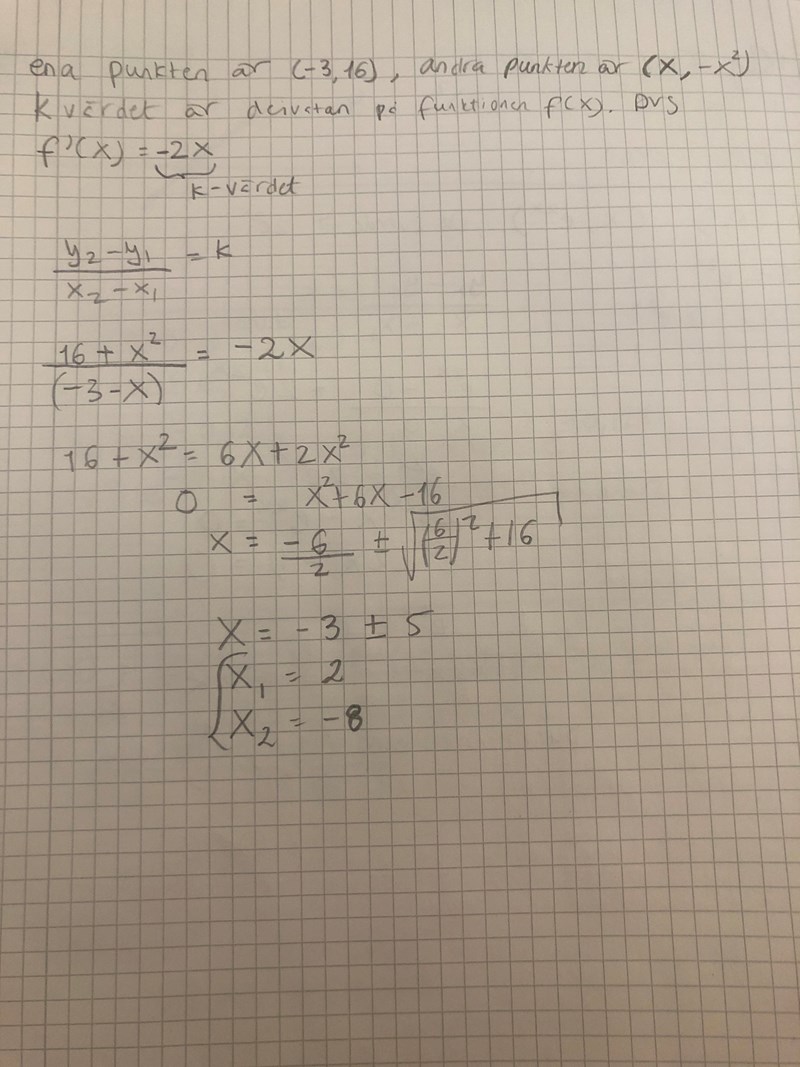 ena punkten är (-3,16), andra punkten är (x, -x²)
K värdet är derivatan på funktionen f(x). DVS
f'(x) = -2x
k-värdet
y₂-y₁ / x₂-x₁ = k
16 + x² / (-3-x) = -2x
16 + x² = 6x + 2x²
0 = x² + 6x - 16
x = -6/2 ± √((6/2)² + 16)
x = -3 ± 5
{x₁ = 2
x₂ = -8